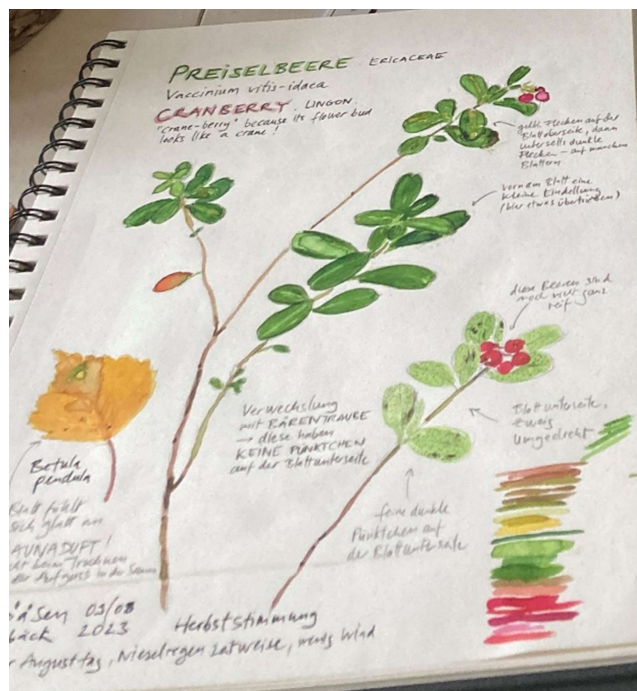 PREISELBEERE ERICACEAE
Vaccinium vitis-idaea
CRANBERRY. LINGON.
"crane-berry" because its flower bud
looks like a crane!
gelbe Flecken auf der
Blattoberseite, dann
unterseits dunkle
Flecken - auf manchen
Blättern
vorn am Blatt eine
kleine Eindellung
(hier etwas übertrieben)
diese Beeren sind
noch nicht ganz
reif
Blattunterseite,
Zweig
umgedreht
Verwechslung
mit BÄRENTRAUBE
→ diese haben
KEINE PÜNKTCHEN
auf der Blattunterseite
feine dunkle
Pünktchen auf
der Blattunterseite
Betula
pendula
Blatt fühlt
sich glatt an
AUNADUFT!
beim Trocknen
der Aufguss in der Sauna
09/08
bäck 2023
Herbststimmung
Augusttag, Nieselregen zeitweise, wenig Wind